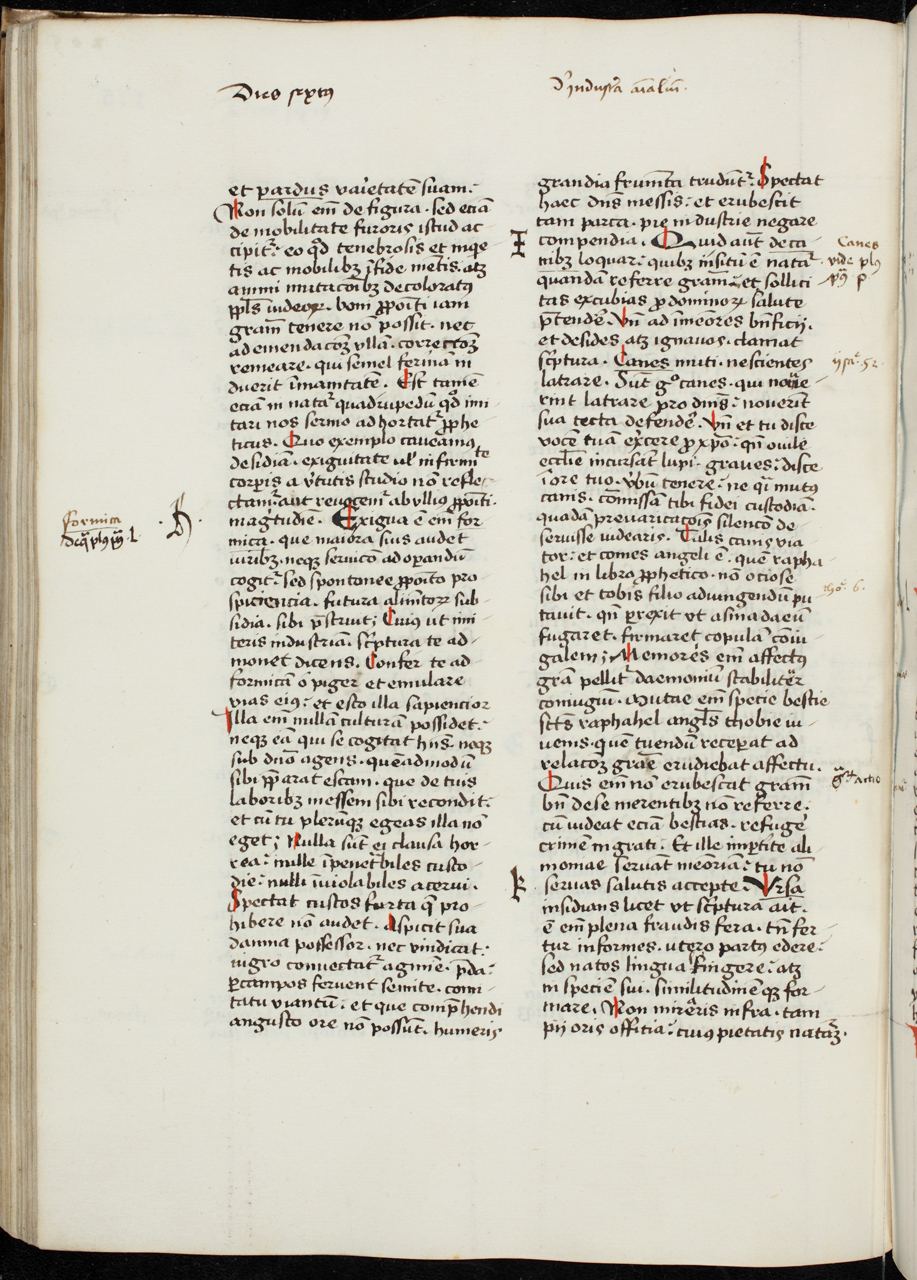 Dies sextus
D' industria aīaliū.
et pardus varietatē suam.
Non solū em̄ de figura. sed eciā
de mobilitate furoris istud ac-
cipitꝛ. eo qd̓ tenebrosis et inq̓e-
tis ac mobilibꝫ ꝑfide mētis. atꝫ
animi mutacōibꝫ decoloratus
ppl̄s iudeoꝝ. bom ꝓpōiti iam
gram̄ tenere nō possit. nec
ad emendacōꝫ vllā. correctōꝫ
remeare. qui semel ferinā in
duerit īmanitatē. Est tamē
eciā in natꝛ̄ quadrupedū qd̓ imi-
tari nos sermo adhortatꝛ ꝓphe
ticus. Quo exemplo caveamus
desidiā. exiguitate vl̓ infirmi te
corꝑis a v̓tutis studio nō refle-
ctamꝛ aut reuocemꝛ ab vllius ꝓpōiti
magn̓tudīe. Exigua ē em̄ for-
mica. que maiora suis audet
viribꝫ. neqꝫ servicō ad oꝑandū
cogitꝛ. sed spontanee ꝓpōito pro
spiciencia. futura alimtoꝝ sub-
sidia. sibi p̄struit; Cuius ut imi-
teris industriā. sc̓ptura te ad-
monet dicens. Confer te ad
formicā o piger et emulare
vias eiꝰ. et esto illa sapiencior
Illa em̄ nullā culturā possidet.
neqꝫ eā qui se cogitat hn̄s. neqꝫ
sub dn̄o agens. quēadmodū
sibi p̄parat escam. que de tuis
laboribꝫ messem sibi recondit.
et cū tu plerūqꝫ egeas illa nō
eget; Nulla sūt ei clausa hor-
rea. nulle īpenet̓biles custo-
die. nulli īuiolabiles acervi.
Spectat custos furta q̄ pro-
hibere nō audet. Aspicit sua
damna possessor. nec vindicat.
nigro convectatꝛ agmīe. p̄da.
ꝑ campos feruent semite. comi-
tatu viantū. et que comp̓hendi
angusto ore nō possūt. humeris
formica
.h.
grandia frum̄ta trudūtꝛ. Spectat
haec dn̄s messis. et erubescit
tam parca. pie industrie negare
compendia. Quid aūt de ca-
nibꝫ loquar. quibꝫ īsitū ē natꝛ̄.
quandā referre gram̄. et sollici
tas excubias ꝓ dominoꝝ salute
p̄tendē. Vn̄ ad īmeōres bn̄ficij.
et desides atꝫ ignavos. clamat
sc̓ptura. Canes muti. nescientes
latrare. Sūt gͦ canes. qui nove-
rint latrare pro dn̄is. noverūt
sua tecta defendē. Vn̄ et tu disce
vocē tuā exercere ꝓ xpō. qn̄ ovile
eccl̄ie incursāt lupi. graves. disce
ī ore tuo. v̓bū tenere. ne qꝛ mutus
canis. cōmissā tibi fidei custodiā.
quadā prevaricacōis silencō de-
seruisse videaris. Talis canis via-
tor. et comes angeli ē. quē rapha-
hel in libro ꝓphetico. nō ociose
sibi et tobis filio adiungendū pu
tavit. qn̄ ꝑrexit ut asmadaeū
fugaret. firmaret copulā cōiu-
galem; Memores em̄ affectꝰ
gra̓ pellitꝛ daemoniū stabilitꝛ
coniugiū. Mutae em̄ specie bestie
sc̄ts raphahel angl̄s thobie iu-
venis. quē tuendū receꝑat ad
relacōꝫ grae̓ erudiebat affectū.
Quis em̄ nō erubescat gram̄
bn̄ de se merentibꝫ nō referre.
cū videat eciā bestias. refugē
crimē ingrati. Et ille imꝑtite ali
moniae servāt meōriam. tu nō
servas salutis accepte. Vrsa
insidians licet ut sc̓ptura ait.
ē em̄ plena fraudis fera. tn̄ fer-
tur informes utero partꝰ edere.
sed natos lingua fingere. atꝫ
in speciē sui. similitudinē qꝫ for-
mare. Non miraris in fera. tam
pij oris officia. cuiꝰ pietatis natꝛ̄ꝫ.
I
K
Canes
vide plꝰ
ysa. 52.
tho. 6.